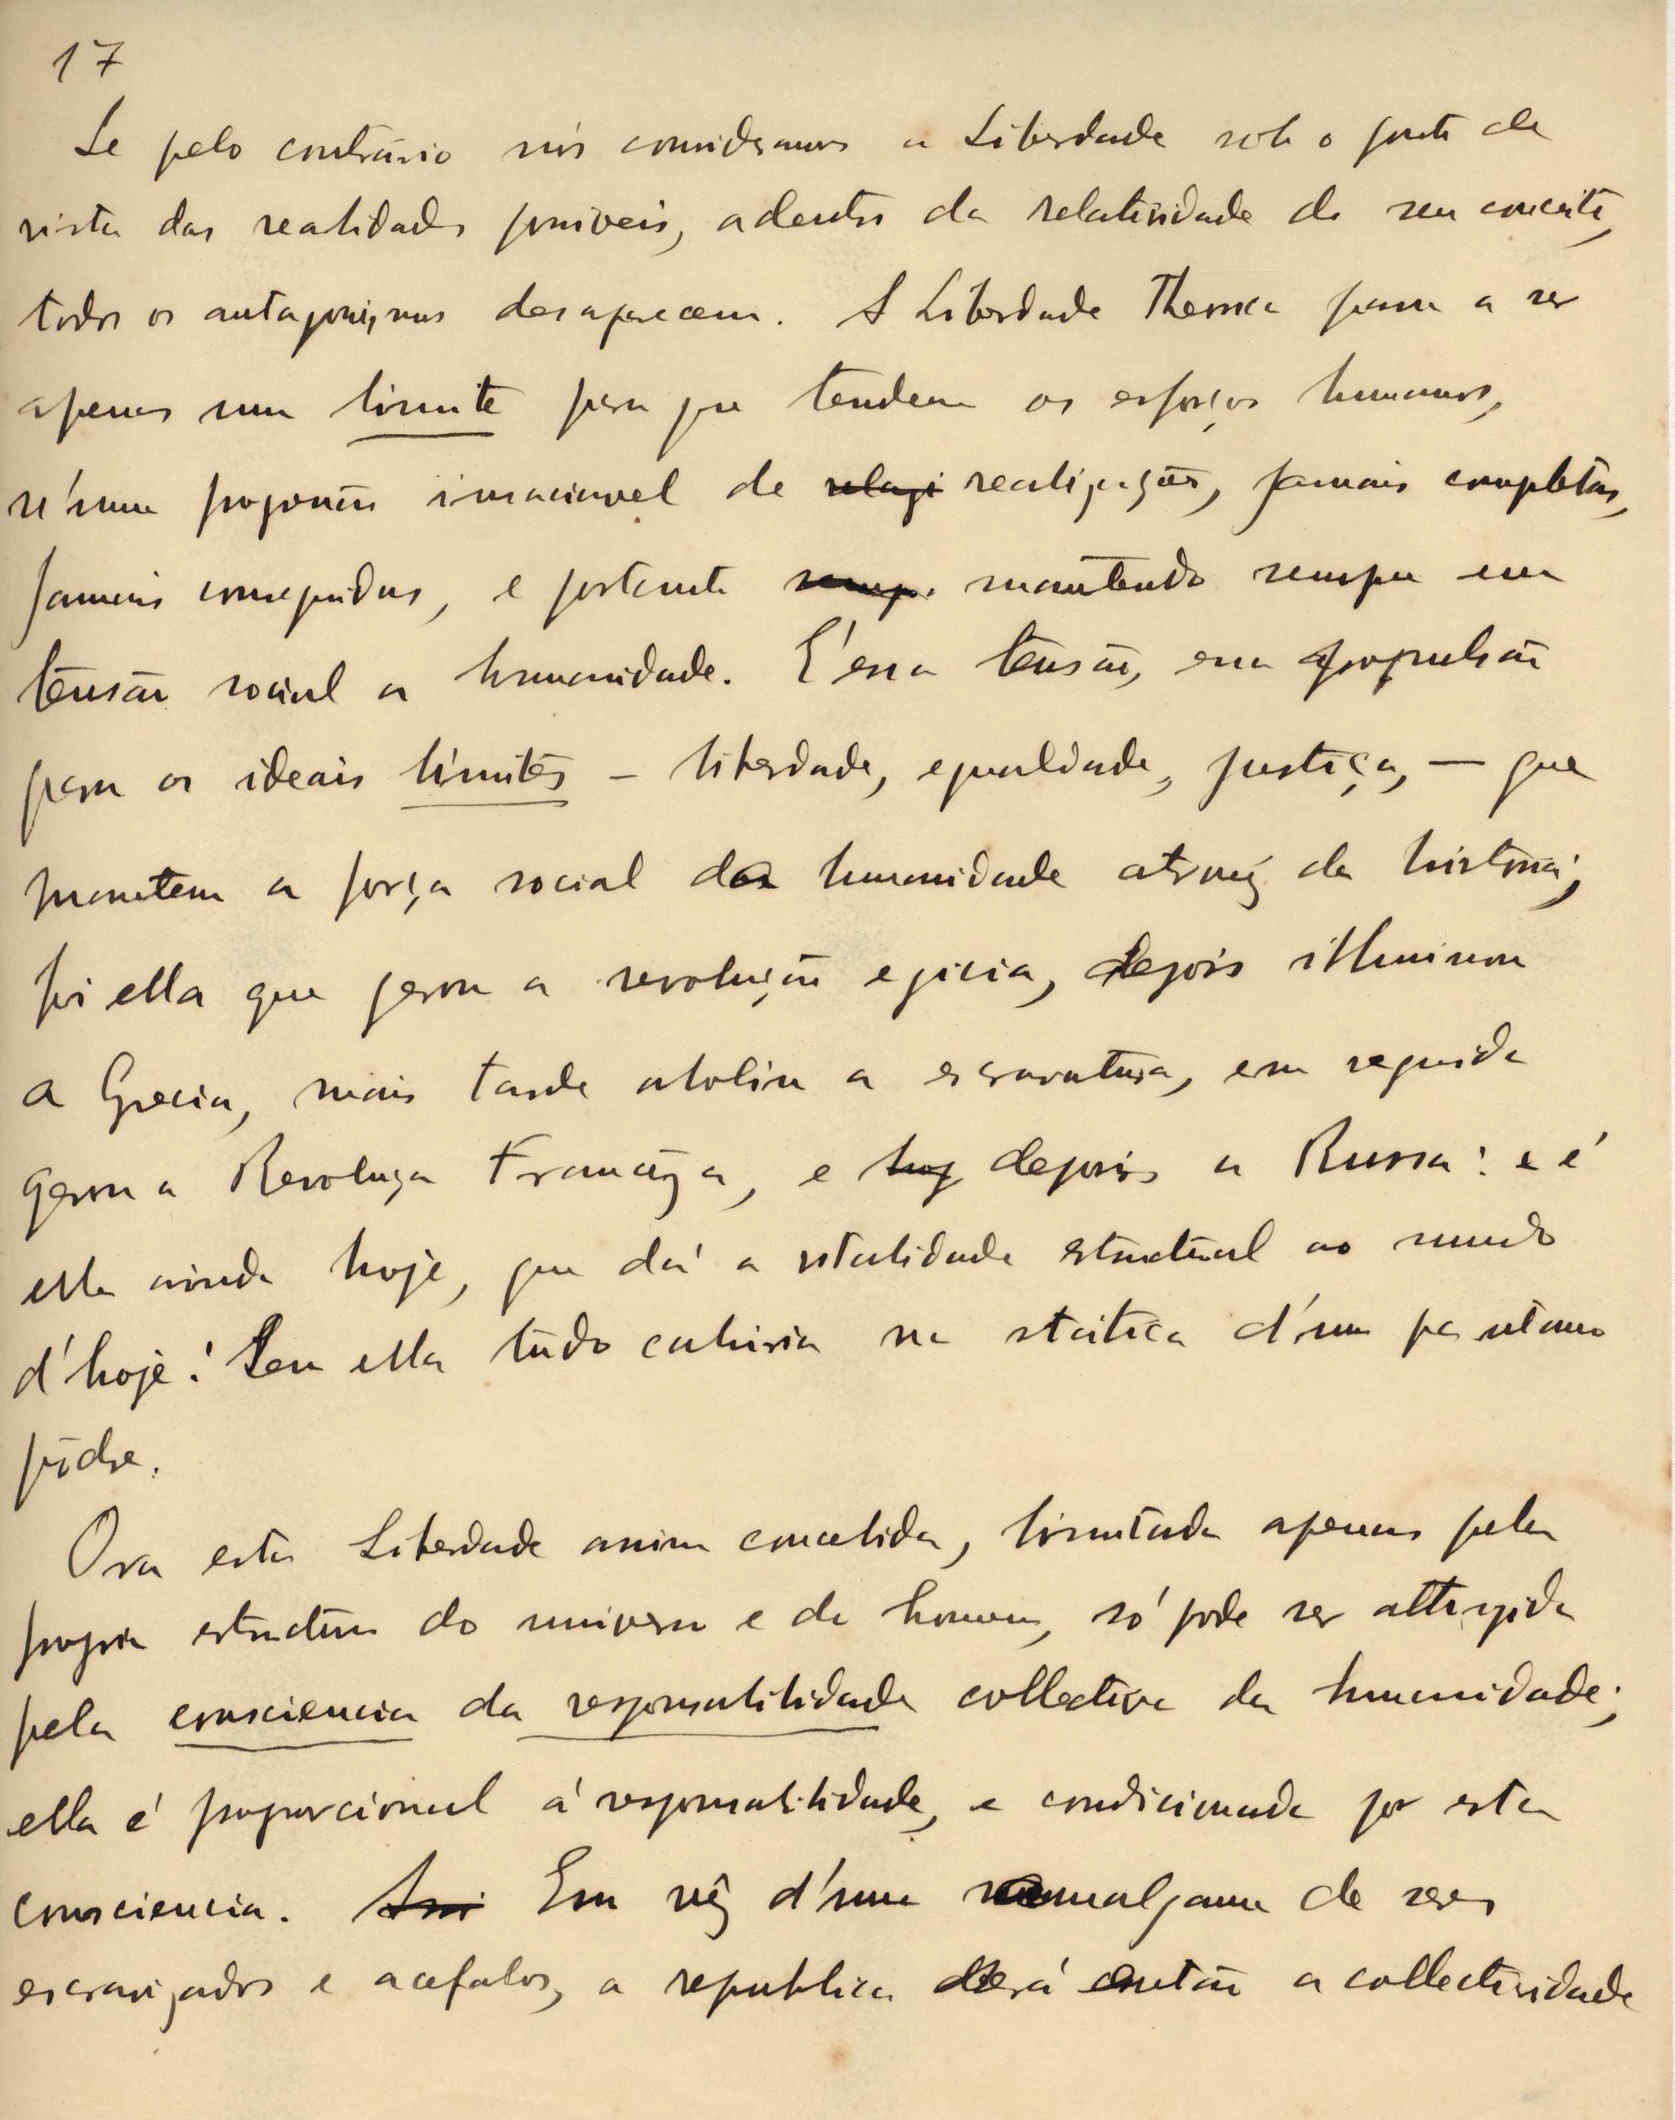 17
Se pelo contrário nós consideramos a Liberdade sob o ponto de
vista das realidades possiveis, adentro da relatividade do seu conceito,
todos os antagonismos desaparecem. A Liberdade Theorica passa a ser
apenas um limite para que tendem os esforços humanos,
n'uma progressão insaciavel de relazi realizações, jamais completas,
jamais conseguidas, e portanto semp. mantendo sempre em
tensão social a humanidade. É essa tensão, essa propulsão
para os ideais limites – liberdade, egualdade, justiça, — que
mantem a força social da humanidade atravez da historia;
foi ella que gerou a revolução egicia, depois illuminou
a Grecia, mais tarde aboliu a escravatura, em seguida
gerou a Revoluça Franceza, e hoj depois a Russa: e é
ella ainda hoje, que dá a vitalidade estructural ao mundo
d'hoje! Sem ella tudo cahiria na statica d'um pantano
pôdre.
Ora esta Liberdade assim concebida, limitada apenas pela
propria estructura do universo e do homem, só pode ser attingida
pela consciencia da responsabilidade collectiva da humanidade;
ella é proporcional á responsabilidade, e condicionada por esta
consciencia. Assi Em vêz d'uma amalgama de seres
escravizados e acefalos, a republica será então a collectividade